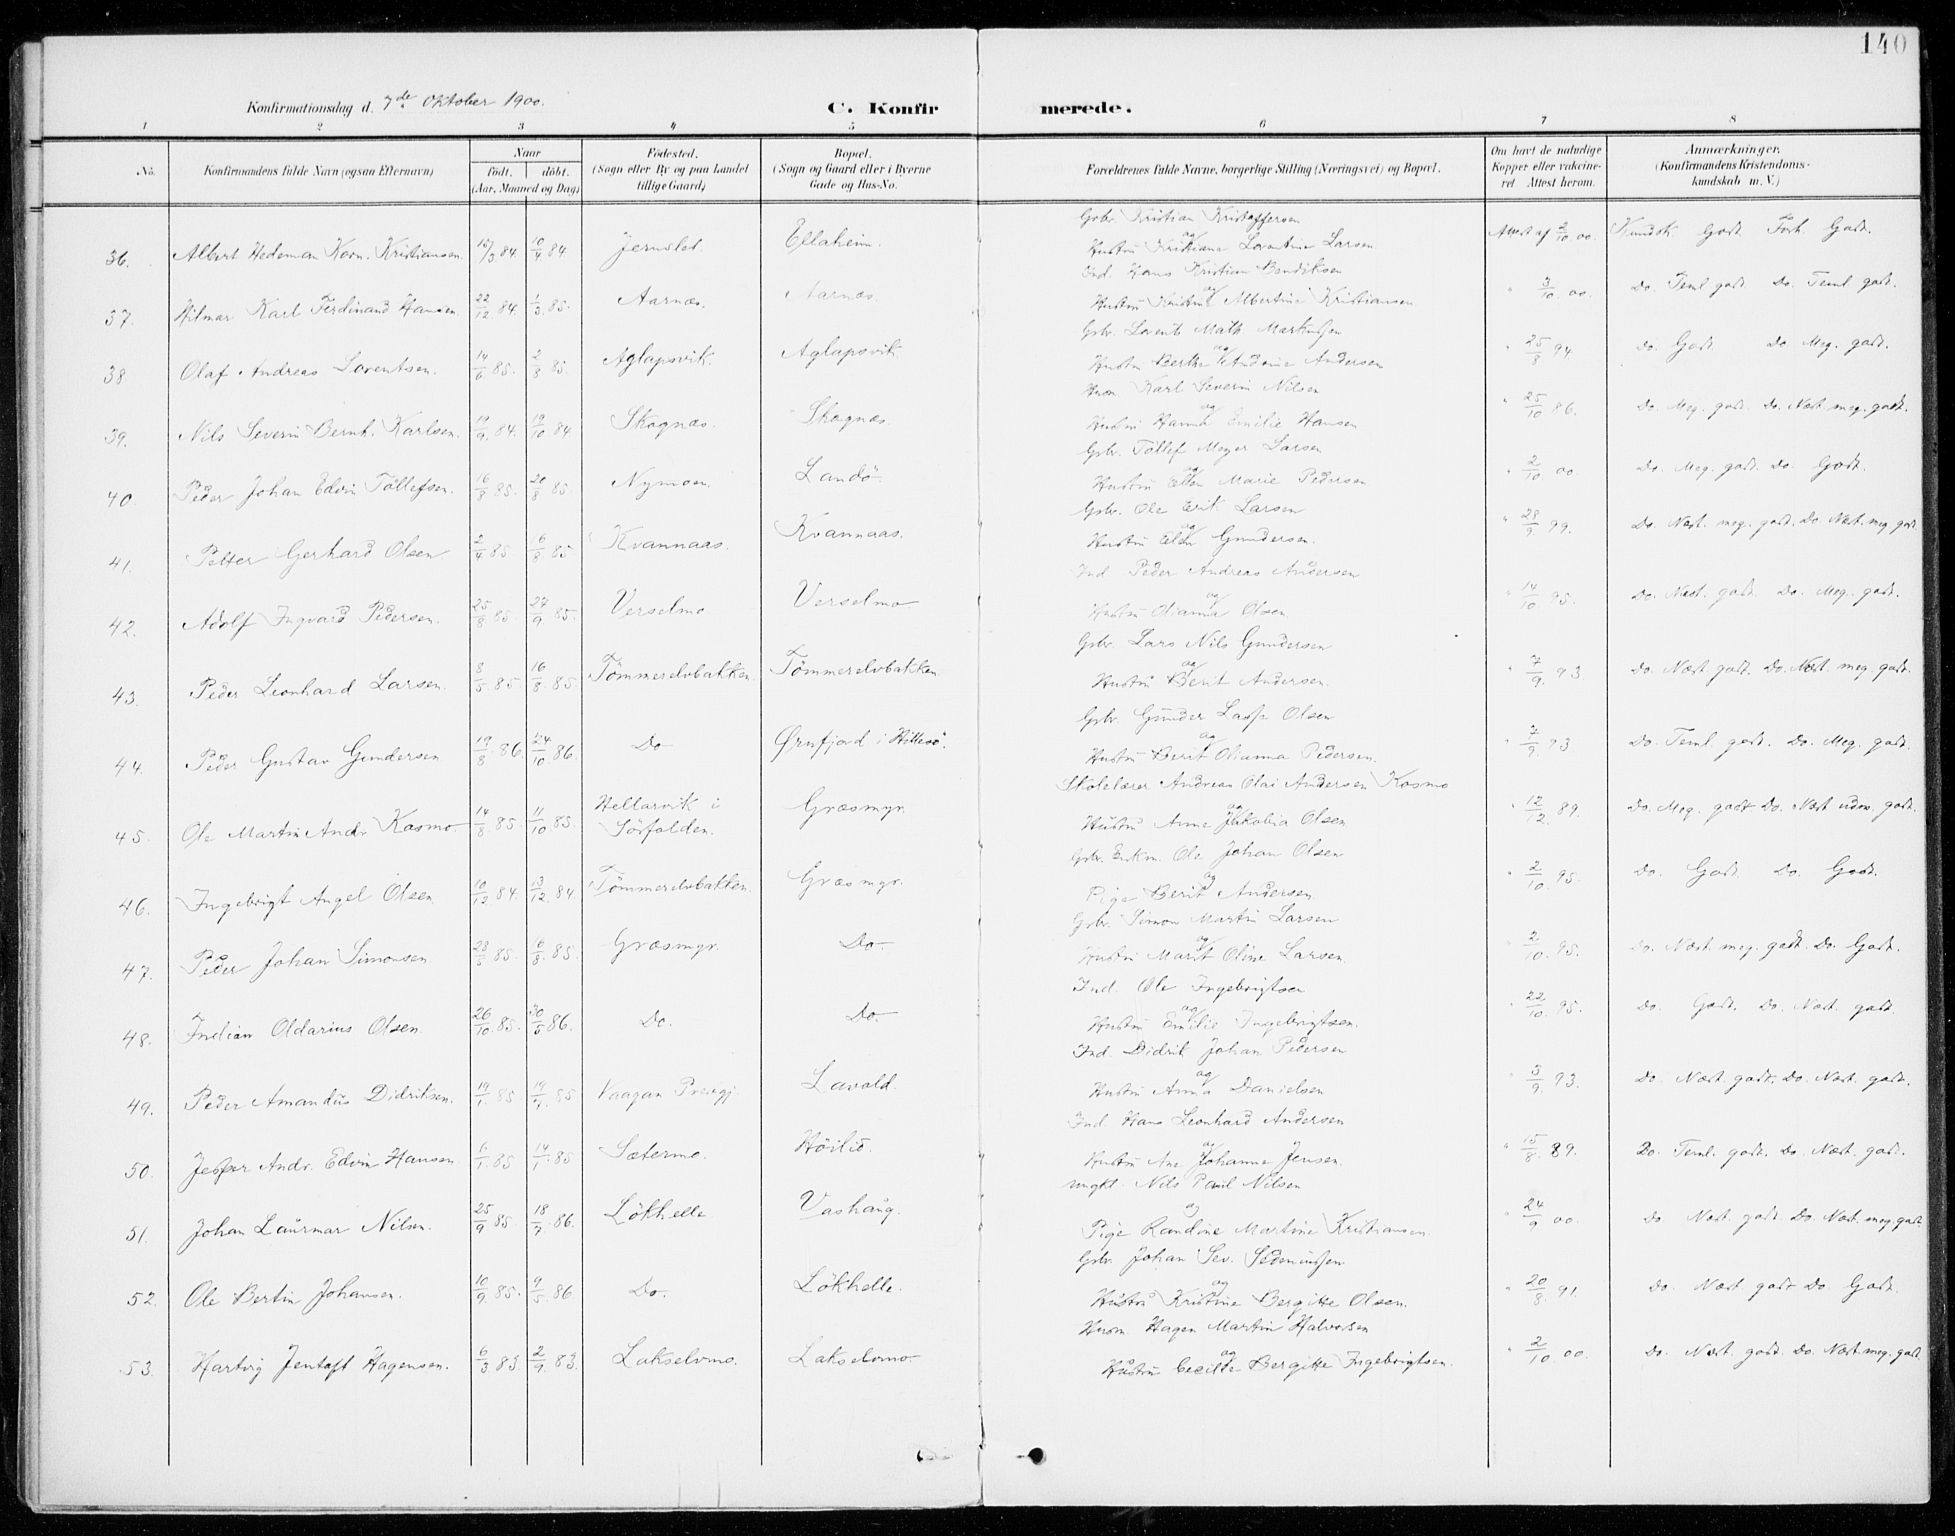 140
Konfirmationsdag d. 7de Oktober 1900.
C. Konfirmerede.
1 2 3 4 5 6 7 8
No. Konfirmandens fulde Navn (ogsaa Efternavn) Naar født. døbt. (Aar, Maaned og Dag) Fødested. (Sogn eller By og paa Landet tillige Gaard) Bopæl. (Sogn og Gaard eller i Byerne Gade og Hus-No. Forældrenes fulde Navne, borgerlige Stilling (Næringsvei) og Bopæl. Om havt de naturlige Kopper eller vakcineret Attest herom. Anmærkninger. (Konfirmandens Kristendomskundskab m. V.)
Gbr. Kristian Kristoffersen
36. Albert Hedeman Korn. Kristiansen. 15/3 84. 10/4 84 Jernslet. Ellaheim. og Hustru Kristiane Lorentine Larsen Attest af 2/10 00. Kundsk. Godt. Forh. Godt.
Ind. Hans Kristian Bendiksen
37. Hilmar Karl Ferdinand Hansen. 22/12 84. 1/3 85. Aarnæs. Aarnæs. og Hustru Kristine Albertine Kristiansen " 3/10 00. Do. Teml godt. Do. Teml. godt.
Gbr. Lorents Math. Markussen
38 Olaf Andreas Lorentsen. 14/6 85. 2/8 85. Aglapsvik. Aglapsvik. og Hustru Berthe Andrine Andersen " 25/8 94. Do. Godt. Do. Meg. godt.
Husm. Karl Severin Nilsen
39. Nils Severin Bernh. Karlsen. 19/9 84. 19/10 84 Skognæs. Skognæs. og Hustru Hanna Emilie Hansen " 25/10 86. Do. Meg. godt. Do. Næst. meg. godt.
Gbr. Tøllef Meyer Larsen
40. Peder Johan Edvin Tøllefsen. 16/3 85. 20/8 85. Nymoen. Landø. og Hustru Ellen Marie Pedersen " 2/10 00 Do. Meg. godt. Do. Godt.
Gbr. Ole Erik Larsen
41. Petter Gerhard Olsen 2/4 85 16/8 85 Kvannaas. Kvannaas. og Hustru Elen Gundersen. " 28/9. 99. Do. Næst. meg. godt. Do. Næst. meg. godt.
Ind Peder Andreas Andersen
42. Adolf Ingvard Pedersen. 25/8 85. 27/9 85. Verselmo Verselmo og Hustru Olianna Olsen " 14/10. 95. Do. Næst. godt. Do. Meg. godt.
Gbr. Lars Nils Gundersen
43. Peder Leonhard Larsen. 8/5 85. 16/8 85. Tømmerelvbakken. Tømmerelvbakken. og Hustru Berit Andersen. " 7/9. 93. Do. Næst godt. Do. Næst. meg. godt.
Gbr. Gunder Lasse Olsen
44. Peder Gustav Gundersen 19/8 86. 24/10 86. Do Ørnfjord i Hillesø. og Hustru Berit Olianna Pedersen. " 7/9. 93 Do. Teml. godt. Do. Meg. godt.
Skolelærer Andreas Olai Andersen Kosmo
45. Ole Martin Andr. Kosmo 14/8 85. 11/10 85. Hellarvik i Sørfolden. Græsmyr. og Hustru Anne Jakobia Olsen " 12/12. 89. Do. Meg. godt Do. Næst udm. godt.
Gbr. Enkm. Ole Johan Olsen
46. Ingebrigt Angel Olsen 10/12 84. 13/12 84 Tømmerelvbakken. Græsmyr. og Pige Berit Andersen " 2/10 95. Do. Godt. Do. Godt.
Gbr. Simon Martin Larsen
47. Peder Johan Simonsen 28/5 85. 16/8 85. Græsmyr. Do. og Hustru Marit Oline Larsen. " 2/10. 95. Do. Næst. meg. godt. Do. Godt.
Ind. Ole Ingebrigtsen
48. Indian Oldarius Olsen. 26/10 85. 30/5 86. Do. Do. og Hustru Emilie Ingebrigtsen. " 22/10. 95. Do. Godt. Do. Næst. godt.
Ind. Didrik Johan Pedersen
49. Peder Amandus Didriksen. 19/1. 85. 19/4. 85 Vaagan Prestgj. Lavold. og Hustru Anna Danielsen " 3/9 93. Do. Næst. godt. Do. Næst. godt.
Ind. Hans Leonhard Andersen
50. Jesper Andr. Edvin Hansen 6/1. 85 14/1. 85 Sætermo. Høilid. og Hustru Ane Johanne Jensen. " 15/8. 89. Do. Teml. godt. Do. Næst. godt.
ungkl. Nils Paul Nilsen
51. Johan Laurmar Nilsen. 25/9 85. 18/7. 86. Løkhelle Vashaug. og Pige Randine Martine Kristiansen. " 24/9 00. Do Næst. godt Do. Næst. meg. godt.
Gbr. Johan Sev. Sedmussen
52. Ole Bertin Johansen. 10/9. 85. 9/5. 86 Do. Løkhelle. og Hustru Kristine Bergitte Olsen. " 20/8. 91. Do. Næst godt Do. Godt.
Husm Hagen Martin Halvorsen
53. Hartvig Jentoft Hagensen. 6/3 83 2/9. 83. Lakselvmo. Lakselvmo. og Hustru Cecilie Bergitte Ingebrigtsen. " 2/10. 00. Do. Næst. godt. Do. Næst. meg. godt.